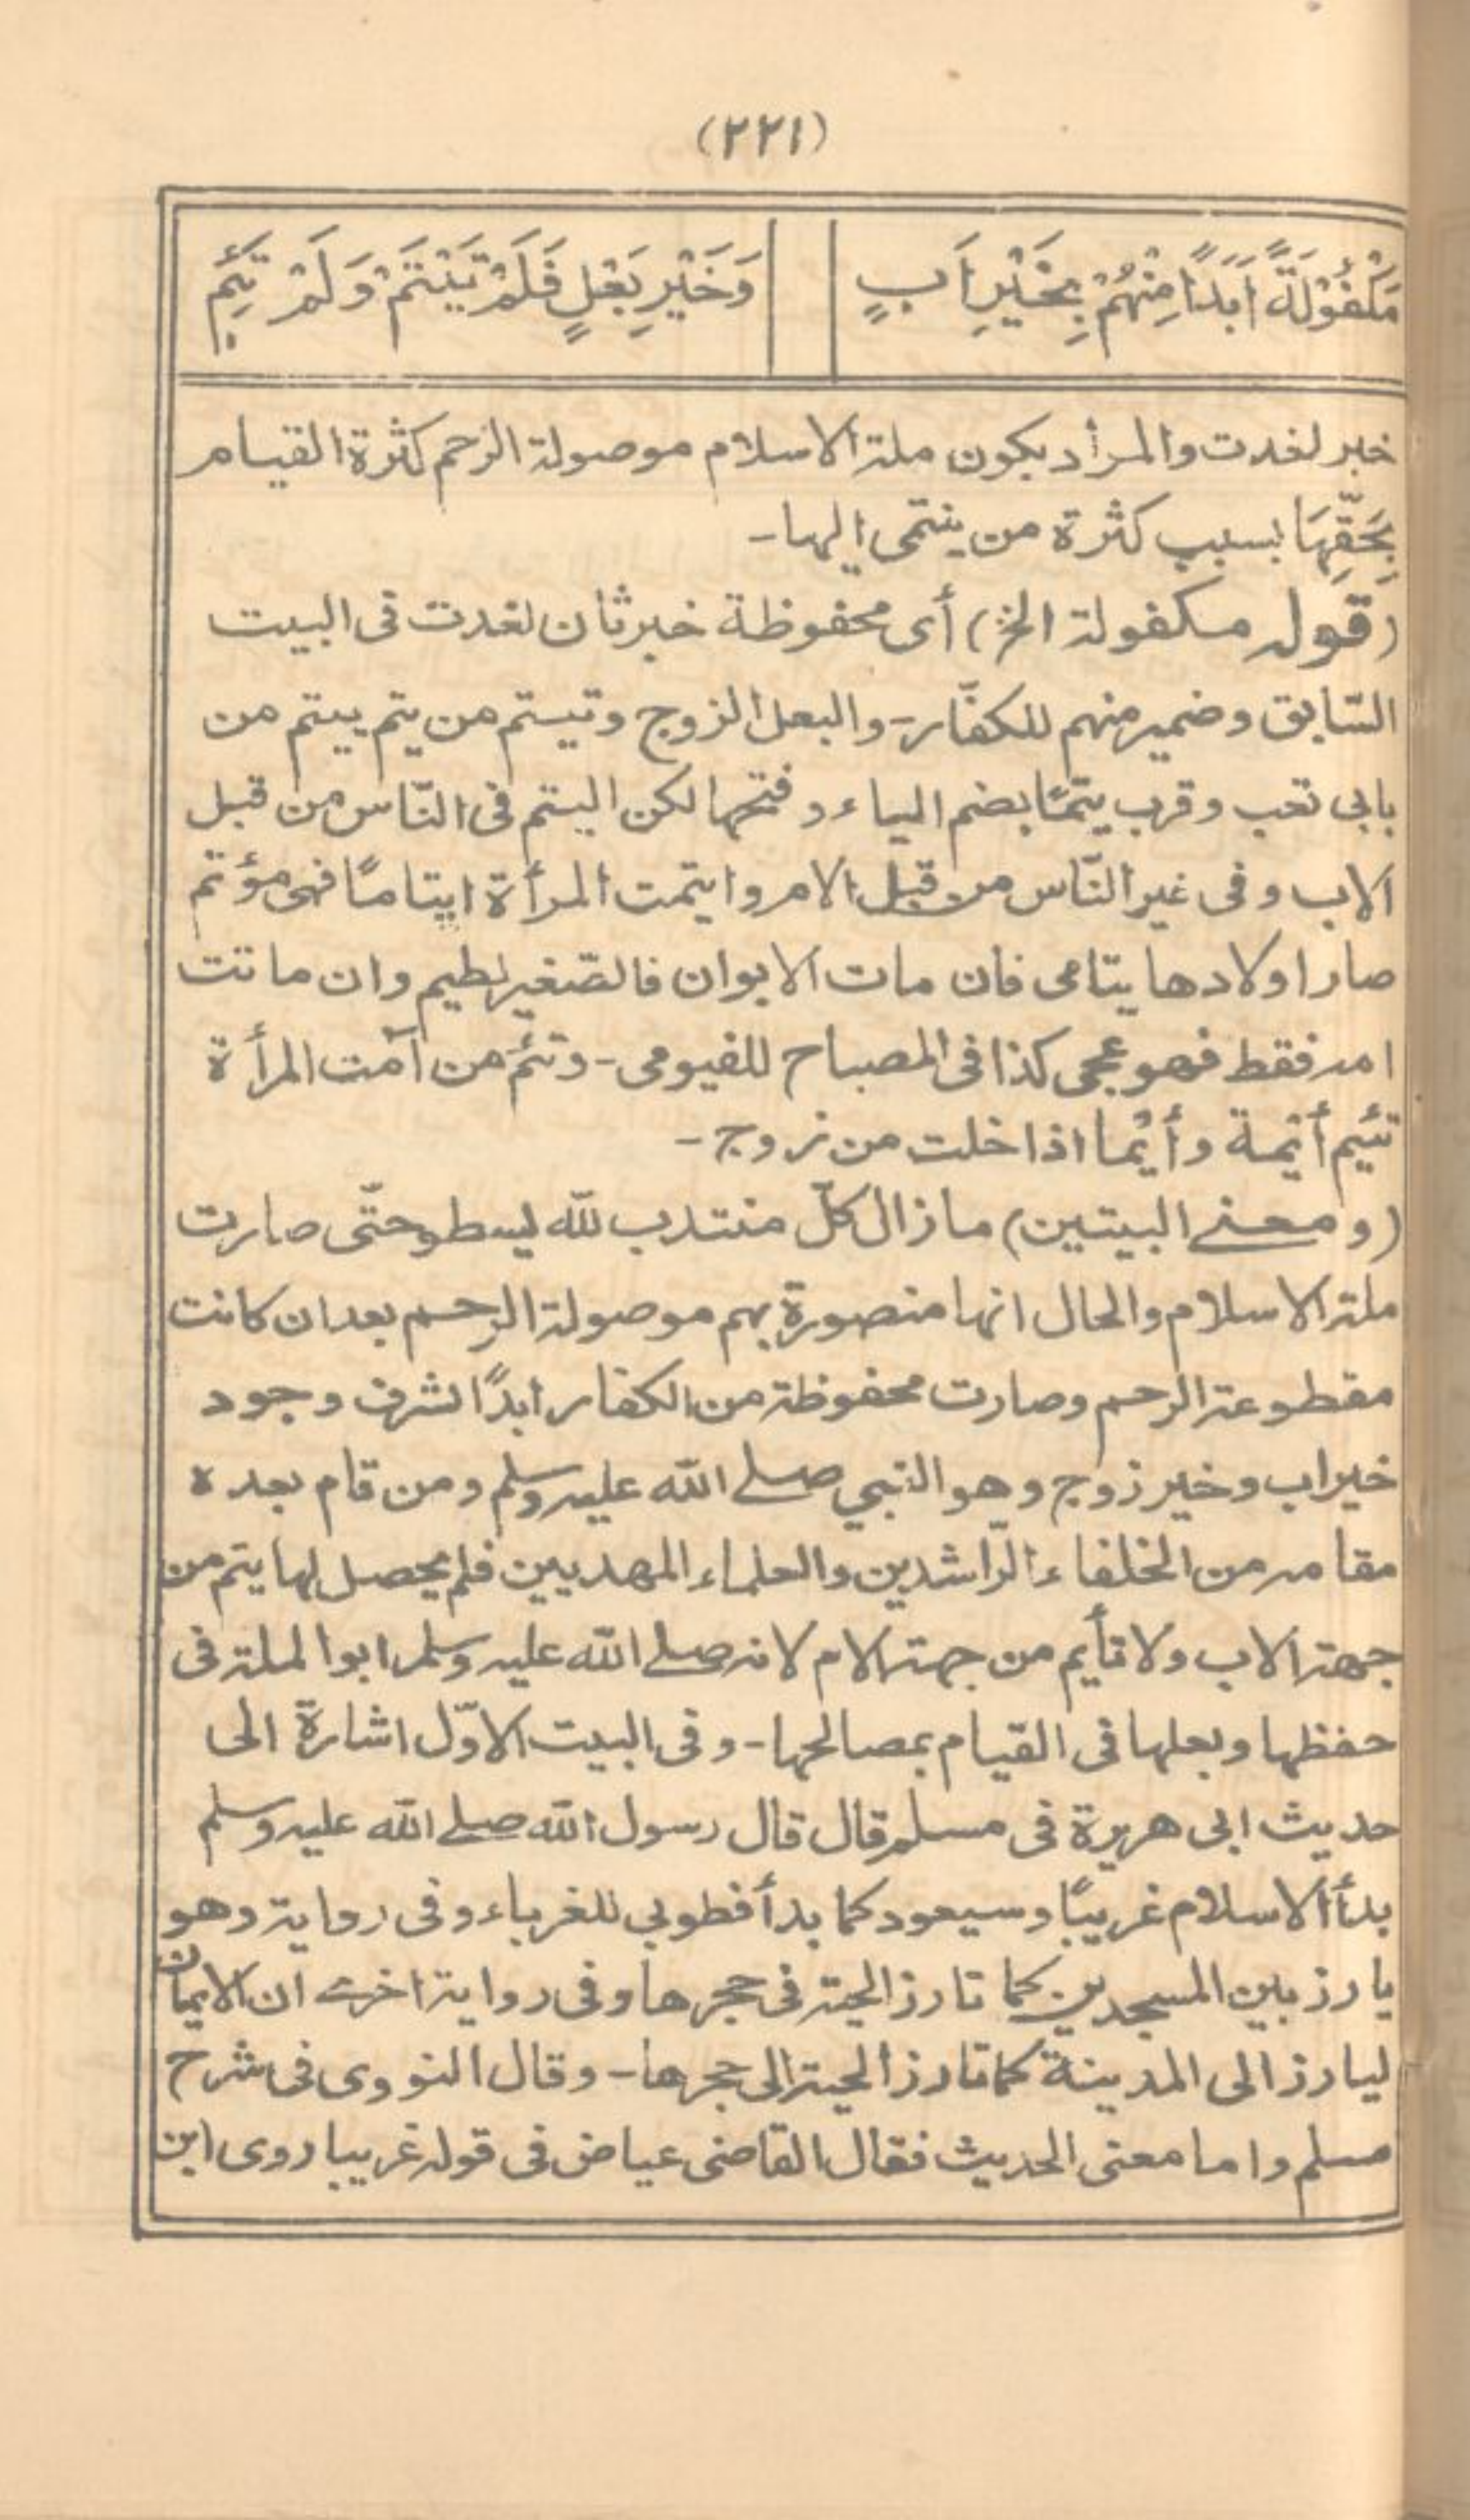 (٢٢١)
مَكْفُوْلَةً اَبَدًا مِنْهُمْ بِخَيْرِ اَبٍ
وَخَيْرِ بَعْلٍ فَلَمْ تَيْتَمْ وَلَمْ تَئِمِ
خبر لغدت والمرأد بكون ملة الاسلام موصولة الرحم كثرة القيام
بِحَقِّهَا بسبب كثرة من ينتمى اليها-
(قوله مكفولة الخ) أى محفوظة خبر ثان لغدت فى البيت
السّابق وضمير منهم للكفّار- والبعل الزوج وتيتم من يتم ييتم من
بابى تعب وقرب يتمًا بضم الياء وفتحها لكن اليتم فى النّاس من قبل
الاب وفى غير النّاس من قبل الام وايتمت المرأة ايتامًا فهى مؤتم
صار اولادها يتامى فان مات الابوان فالصّغير لطيم وان ماتت
امه فقط فهو عجى كذا فى المصباح للفيومى- وتئم من آمت المرأة
تئيم أئمة وأئما اذا خلت من زوج-
(ومعنى البيتين) مازال كلّ منتدب للّه يسطو حتّى صارت
ملة الاسلام والحال انها منصورة بهم موصولة الرحم بعد ان كانت
مقطوعة الرحم وصارت محفوظة من الكفار ابدًا لشرف وجود
خير اب وخير زوج وهو النبي صلى الله عليه وسلم ومن قام بعده
مقامه من الخلفاء الرّاشدين والعلماء المهديين فلم يحصل لها يتم من
جهة الاب ولا تأيم من جهة الام لانه صلى الله عليه وسلم ابو الملة فى
حفظها وبعلها فى القيام بمصالحها- وفى البيت الاوّل اشارة الى
حديث ابى هريرة فى مسلم قال قال رسول الله صلى الله عليه وسلم
بدأ الاسلام غريبًا وسيعود كما بدأ فطوبي للغرباء وفى رواية وهو
يارز بين المسجدين كما تارز الحية فى حجرها وفى رواية اخرى ان الايمان
ليارز الى المدينة كما تارز الحية الى حجرها- وقال النووى فى شرح
مسلم واما معنى الحديث فقال القاضى عياض فى قوله غريبا روى ابن